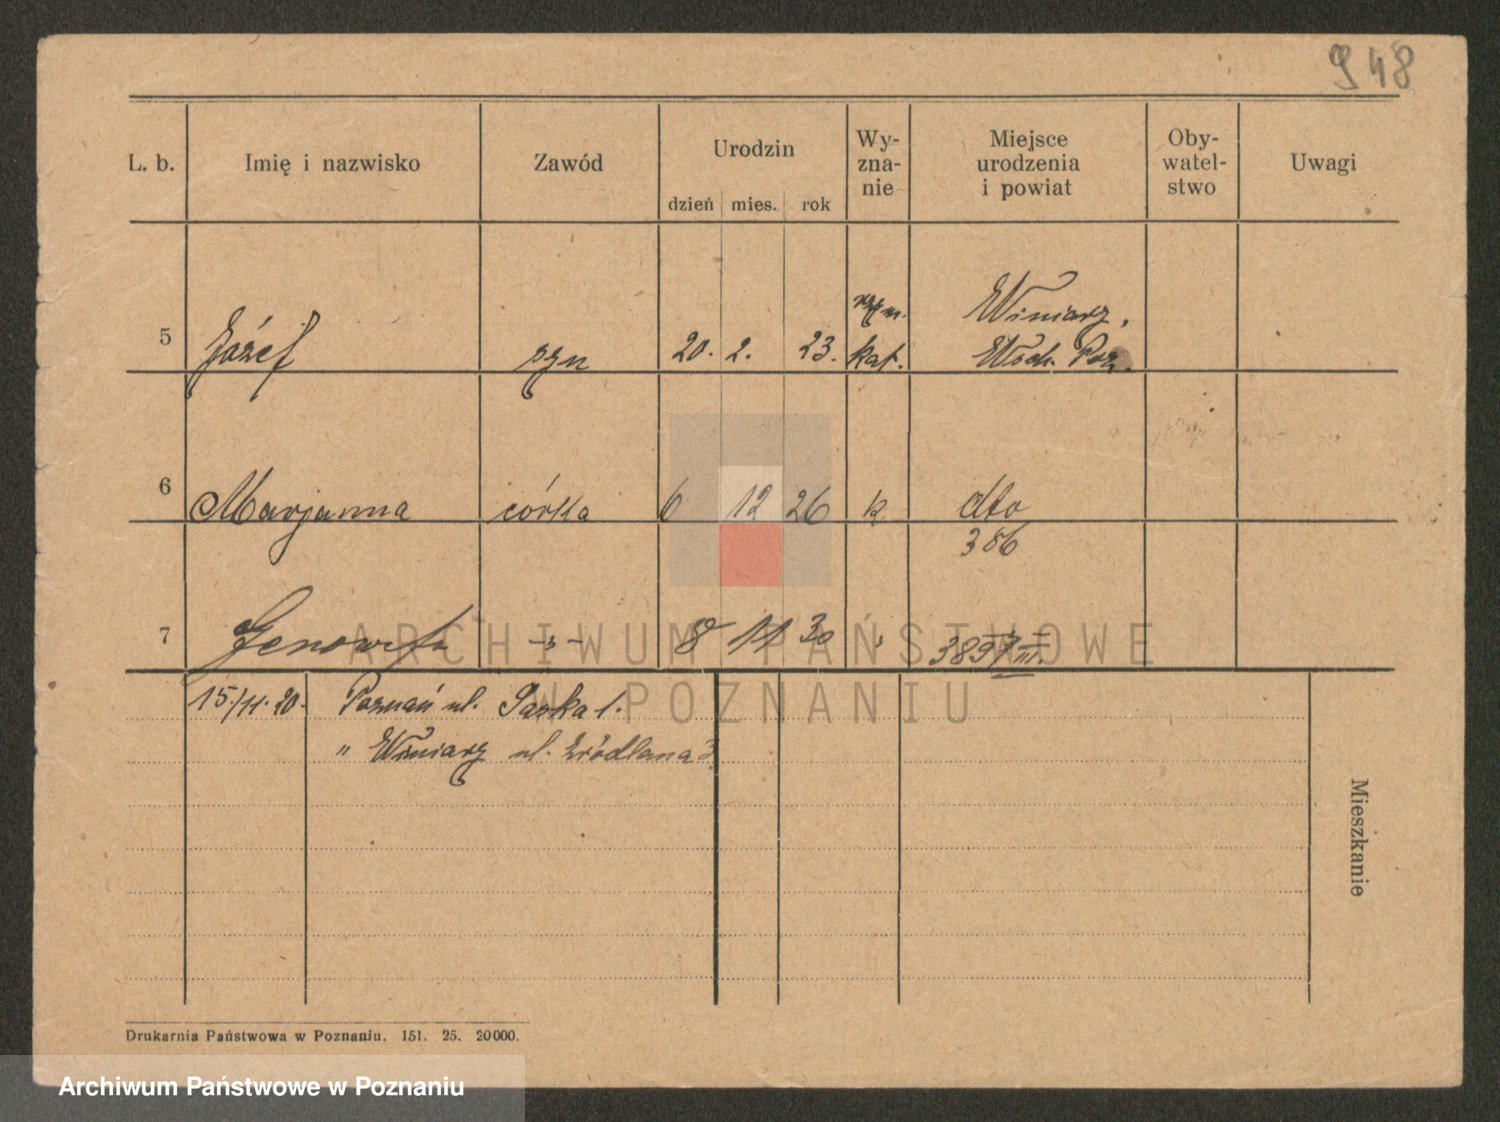 948
L. b. Imię i nazwisko Zawód Urodzin dzień mies. rok Wy-zna-nie Miejsce urodzenia i powiat Oby-watel-stwo Uwagi
rzym. Winiary,
5 Józef syn 20. 2. 23. kat. Wsch. Poz.
6 Marjanna córka 6 12 26 k dto
386
7 Genowefa -"- 8 11 30 " 3897 III.
15./11. 20. Poznań ul.
" Winiary ul. Źródlana 3
Mieszkanie
Drukarnia Państwowa w Poznaniu. 151. 25. 20000.
ARCHIWUM PAŃSTWOWE
W POZNANIU
Archiwum Państwowe w Poznaniu